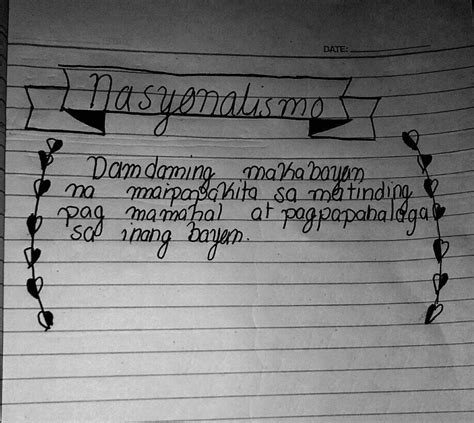 DATE:
Nasyonalismo
Damdaming makabayan
na maipapakita sa matinding
pag mamahal at pagpapahalaga
sa inang bayan.